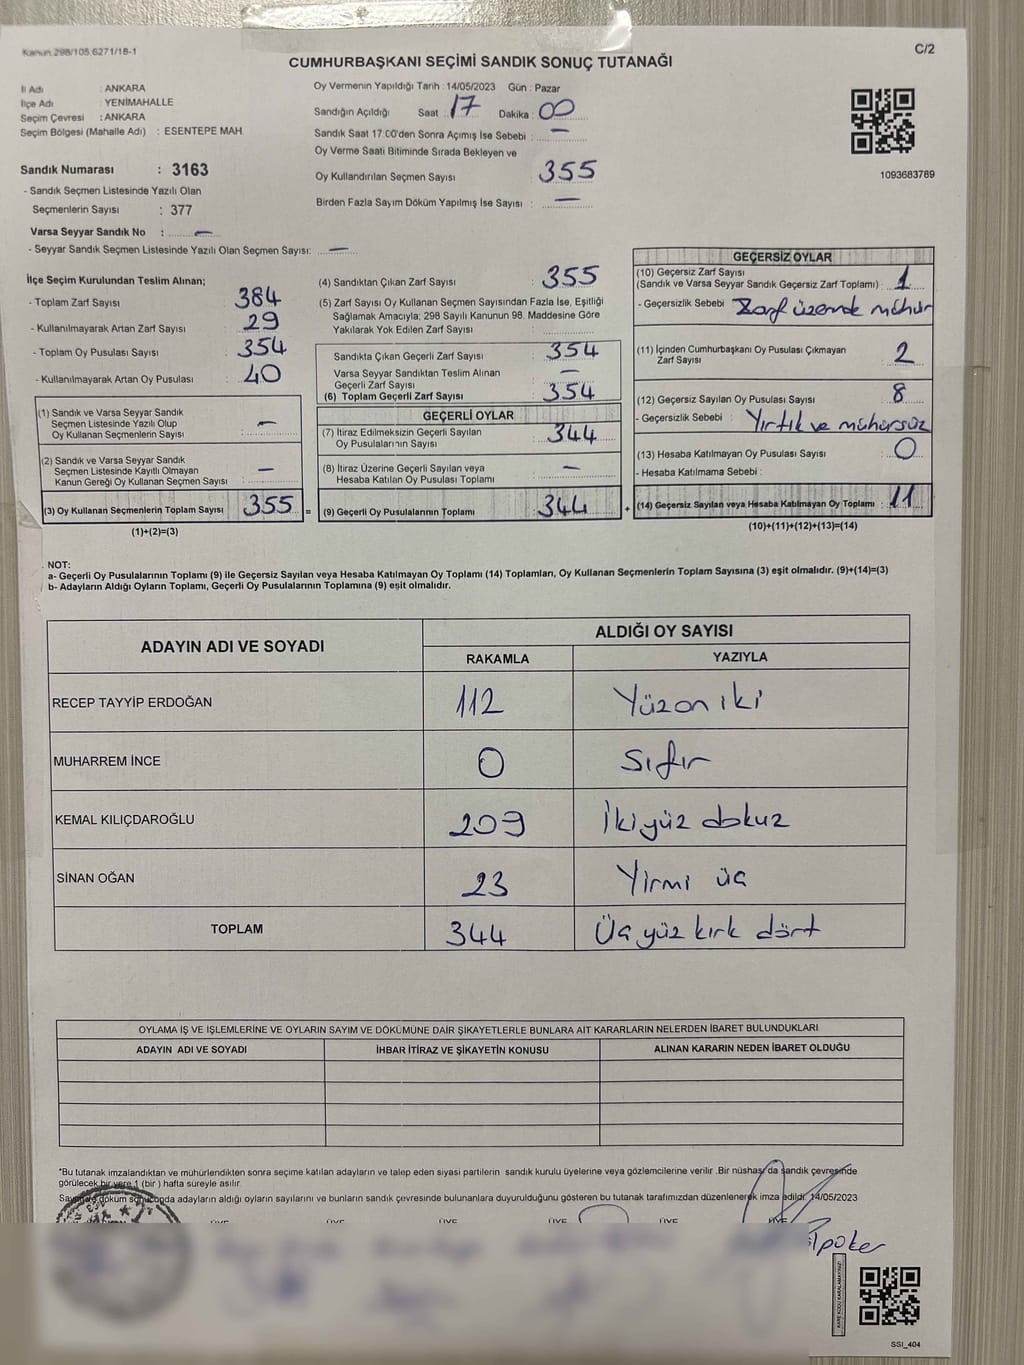 Kanun 298/105,6271/18-1
C/2
CUMHURBAŞKANI SEÇİMİ SANDIK SONUÇ TUTANAĞI
İl Adı : ANKARA
İlçe Adı : YENİMAHALLE
Seçim Çevresi : ANKARA
Seçim Bölgesi (Mahalle Adı) : ESENTEPE MAH.
Oy Vermenin Yapıldığı Tarih : 14/05/2023 Gün : Pazar
Sandığın Açıldığı Saat : 17 Dakika : 00
Sandık Saat 17:00'den Sonra Açımış İse Sebebi : —
Oy Verme Saati Bitiminde Sırada Bekleyen ve
Oy Kullandırılan Seçmen Sayısı : 355
Birden Fazla Sayım Döküm Yapılmış İse Sayısı : —
1093683789
Sandık Numarası : 3163
- Sandık Seçmen Listesinde Yazılı Olan
Seçmenlerin Sayısı : 377
Varsa Seyyar Sandık No : —
- Seyyar Sandık Seçmen Listesinde Yazılı Olan Seçmen Sayısı: —
İlçe Seçim Kurulundan Teslim Alınan;
- Toplam Zarf Sayısı : 384
- Kullanılmayarak Artan Zarf Sayısı : 29
- Toplam Oy Pusulası Sayısı : 354
- Kullanılmayarak Artan Oy Pusulası : 40
(1) Sandık ve Varsa Seyyar Sandık
Seçmen Listesinde Yazılı Olup
Oy Kullanan Seçmenlerin Sayısı : —
(2) Sandık ve Varsa Seyyar Sandık
Seçmen Listesinde Kayıtlı Olmayan
Kanun Gereği Oy Kullanan Seçmen Sayısı : —
(3) Oy Kullanan Seçmenlerin Toplam Sayısı 355 =
(1)+(2)=(3)
(4) Sandıktan Çıkan Zarf Sayısı : 355
(5) Zarf Sayısı Oy Kullanan Seçmen Sayısından Fazla İse, Eşitliği
Sağlamak Amacıyla; 298 Sayılı Kanunun 98. Maddesine Göre
Yakılarak Yok Edilen Zarf Sayısı :
Sandıkta Çıkan Geçerli Zarf Sayısı : 354
Varsa Seyyar Sandıktan Teslim Alınan
Geçerli Zarf Sayısı : —
(6) Toplam Geçerli Zarf Sayısı : 354
GEÇERLİ OYLAR
(7) İtiraz Edilmeksizin Geçerli Sayılan
Oy Pusulalarının Sayısı : 344
(8) İtiraz Üzerine Geçerli Sayılan veya
Hesaba Katılan Oy Pusulası Toplamı : —
(9) Geçerli Oy Pusulalarının Toplamı : 344 +
GEÇERSİZ OYLAR
(10) Geçersiz Zarf Sayısı
(Sandık ve Varsa Seyyar Sandık Geçersiz Zarf Toplamı) : 1
- Geçersizlik Sebebi : Zarf üzerinde mühür
(11) İçinden Cumhurbaşkanı Oy Pusulası Çıkmayan
Zarf Sayısı : 2
(12) Geçersiz Sayılan Oy Pusulası Sayısı : 8
- Geçersizlik Sebebi : Yırtık ve mühürsüz
(13) Hesaba Katılmayan Oy Pusulası Sayısı : 0
- Hesaba Katılmama Sebebi :
(14) Geçersiz Sayılan veya Hesaba Katılmayan Oy Toplamı : 11
(10)+(11)+(12)+(13)=(14)
NOT:
a- Geçerli Oy Pusulalarının Toplamı (9) ile Geçersiz Sayılan veya Hesaba Katılmayan Oy Toplamı (14) Toplamları, Oy Kullanan Seçmenlerin Toplam Sayısına (3) eşit olmalıdır. (9)+(14)=(3)
b- Adayların Aldığı Oyların Toplamı, Geçerli Oy Pusulalarının Toplamına (9) eşit olmalıdır.
ADAYIN ADI VE SOYADI ALDIĞI OY SAYISI
RAKAMLA YAZIYLA
RECEP TAYYİP ERDOĞAN 112 Yüzon iki
MUHARREM İNCE 0 Sıfır
KEMAL KILIÇDAROĞLU 209 İkiyüz dokuz
SİNAN OĞAN 23 Yirmi üç
TOPLAM 344 Üç yüz kırk dört
OYLAMA İŞ VE İŞLEMLERİNE VE OYLARIN SAYIM VE DÖKÜMÜNE DAİR ŞİKAYETLERLE BUNLARA AİT KARARLARIN NELERDEN İBARET BULUNDUKLARI
ADAYIN ADI VE SOYADI İHBAR İTİRAZ VE ŞİKAYETİN KONUSU ALINAN KARARIN NEDEN İBARET OLDUĞU
*Bu tutanak imzalandıktan ve mühürlendikten sonra seçime katılan adayların ve talep eden siyasi partilerin sandık kurulu üyelerine veya gözlemcilerine verilir .Bir nüshası da sandık çevresinde
görülecek bir yere 1 (bir ) hafta süreyle asılır.
döküm sonucunda adayların aldığı oyların sayılarını ve bunların sandık çevresinde bulunanlara duyurulduğunu gösteren bu tutanak tarafımızdan düzenlenerek imza edildi. 14/05/2023
ÜYE ÜYE ÜYE ÜYE ÜYE ÜYE
SSI_404